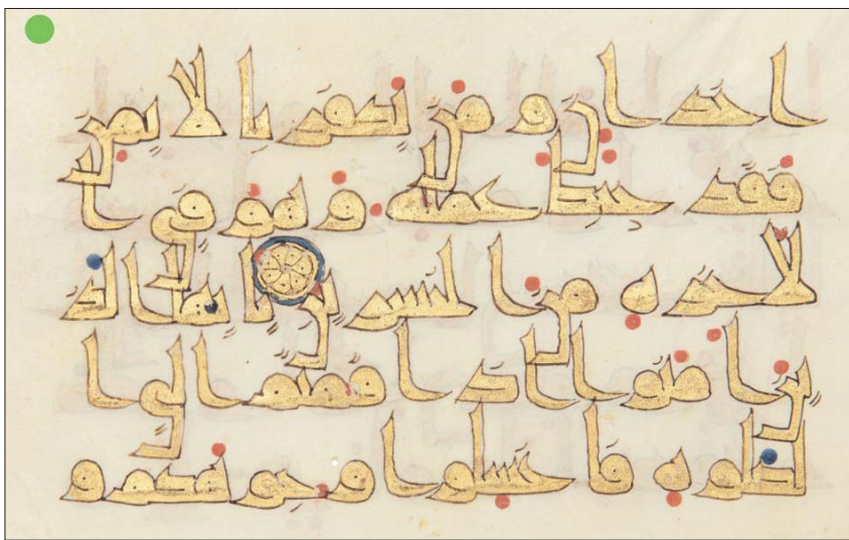 اخدان ومن يكفر بالايمن
فقد حبط عمله وهو في ا
لاخرة من الخسرين يايها الذ
ين امنوا اذا قمتم الى ا
لصلوة فاغسلوا وجوهكم و